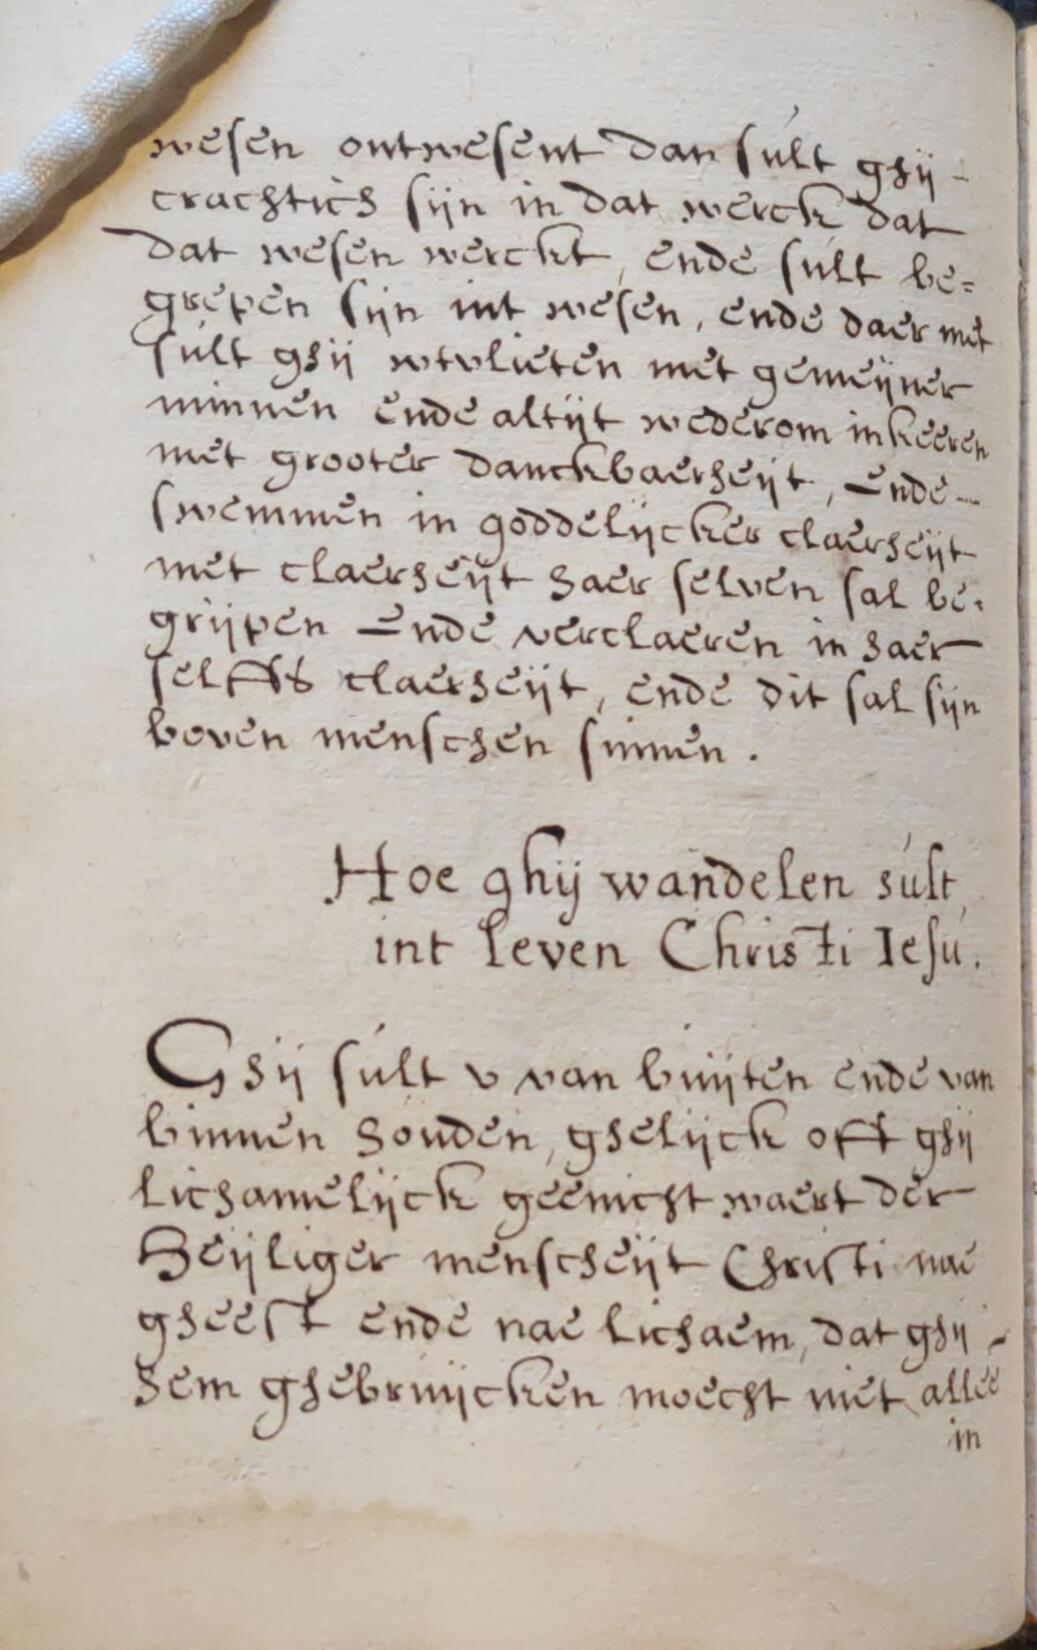 wesen ontwesent dan sult ghij -
crachtich sijn in dat werck dat
dat wesen werckt, ende sult be=
grepen sijn int wesen, ende daer met
sult ghij wtvlieten met gemeijner
minnen ende altijt wederom inkeeren
met grooter danckbaerheijt, ende -
swemmen in goddelijcker claerheijt
met claerheijt haer selven sal be=
grijpen ende verclaeren in haer
selffs claerheijt, ende dit sal sijn
boven menschen sinnen.
Hoe ghij wandelen sult,
int leven Christi Iesu.
Ghij sult v van buijten ende van
binnen houden, ghelijck oft ghij
lichamelijck geenicht waert der
Heijliger menscheijt Christi nae
gheest ende nae lichaem, dat ghij -
hem ghebruijcken moecht niet allee
in